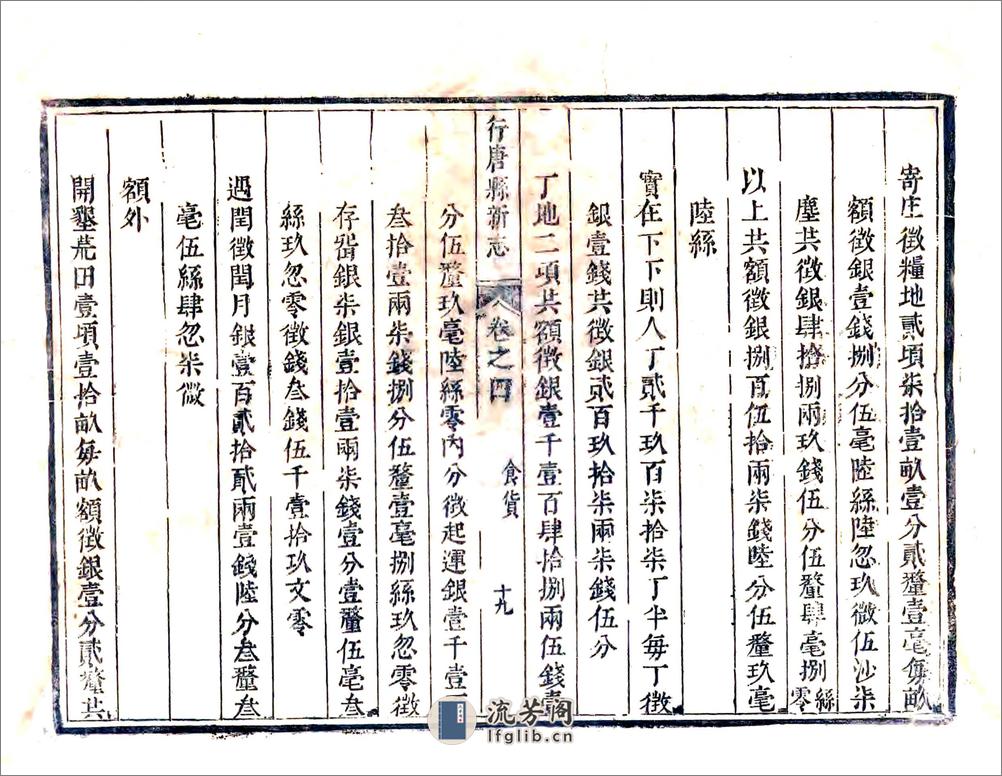 寄庄徵糧地貳頃柒拾壹畝壹分貳釐壹毫每畝
額徵銀壹錢捌分伍毫陸絲陸忽玖微伍沙柒
塵共徵銀肆拾捌兩玖錢伍分伍釐肆毫捌絲零
以上共額徵銀捌百伍拾兩柒錢陸分伍釐玖毫
陸絲
實在下下則人丁貳千玖百柒拾柒丁半每丁徵
銀壹錢共徵銀貳百玖拾柒兩柒錢伍分
丁地二項共額徵銀壹千壹百肆拾捌兩伍錢壹
行唐縣新志 卷之四 食貨 十九
分伍釐玖毫陸絲零內分徵起運銀壹千壹百
叁拾壹兩柒錢捌分伍釐壹毫捌絲玖忽零徵
存留銀柒銀壹拾壹兩柒錢壹分壹釐伍毫叁
絲玖忽零徵錢叁錢伍千壹拾玖文零
遇閏徵閏月銀壹百貳拾貳兩壹錢陸分叁釐叁
毫伍絲肆忽柒微
額外
開墾荒田壹頃壹拾畝每畝額徵銀壹分貳釐共
流芳阁
lfglib.cn